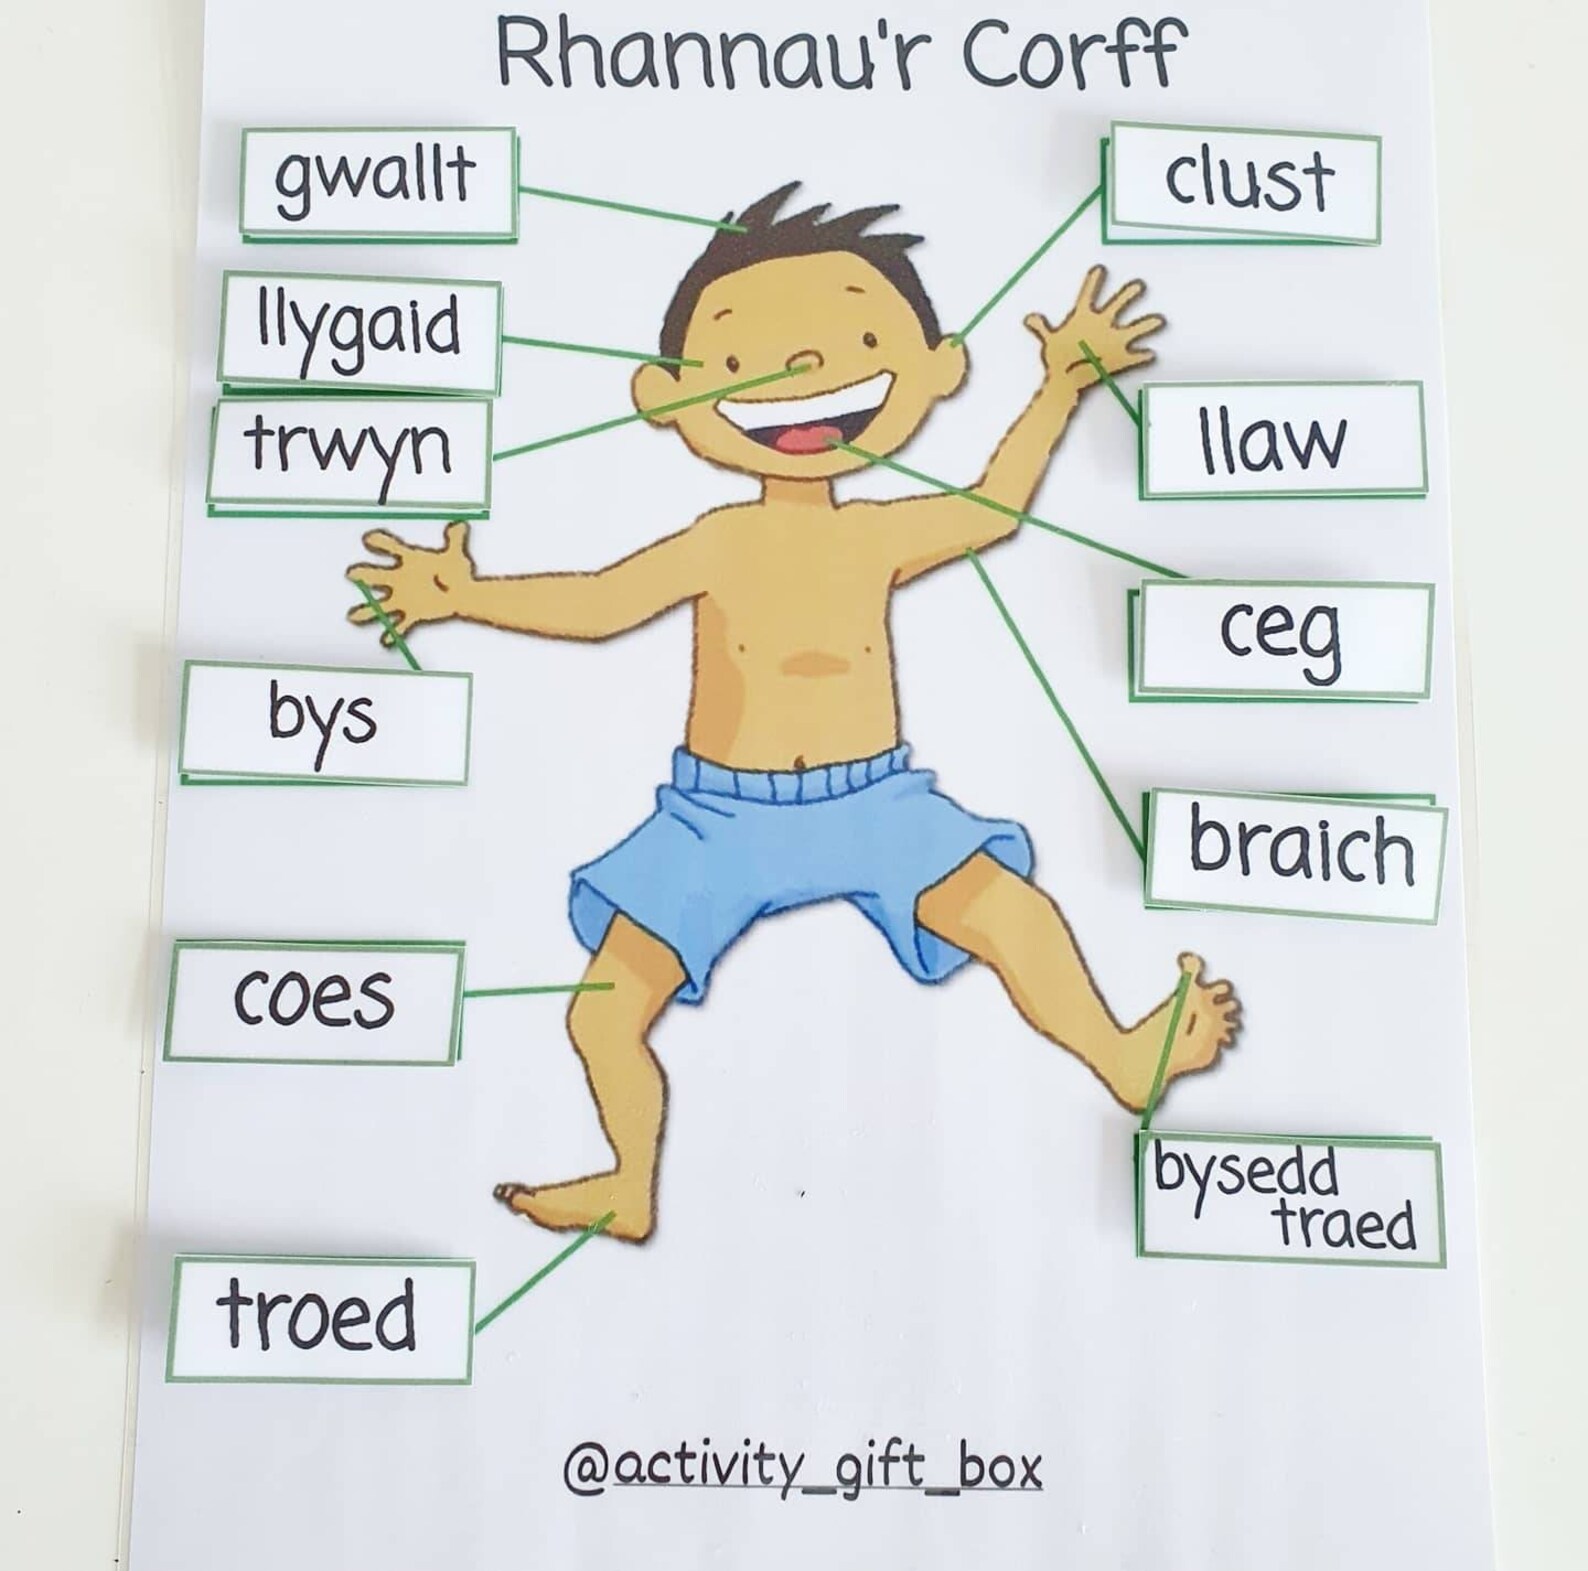 Rhannau'r Corff
gwallt
clust
llygaid
trwyn
llaw
bys
ceg
braich
coes
bysedd
traed
troed
@activity_gift_box